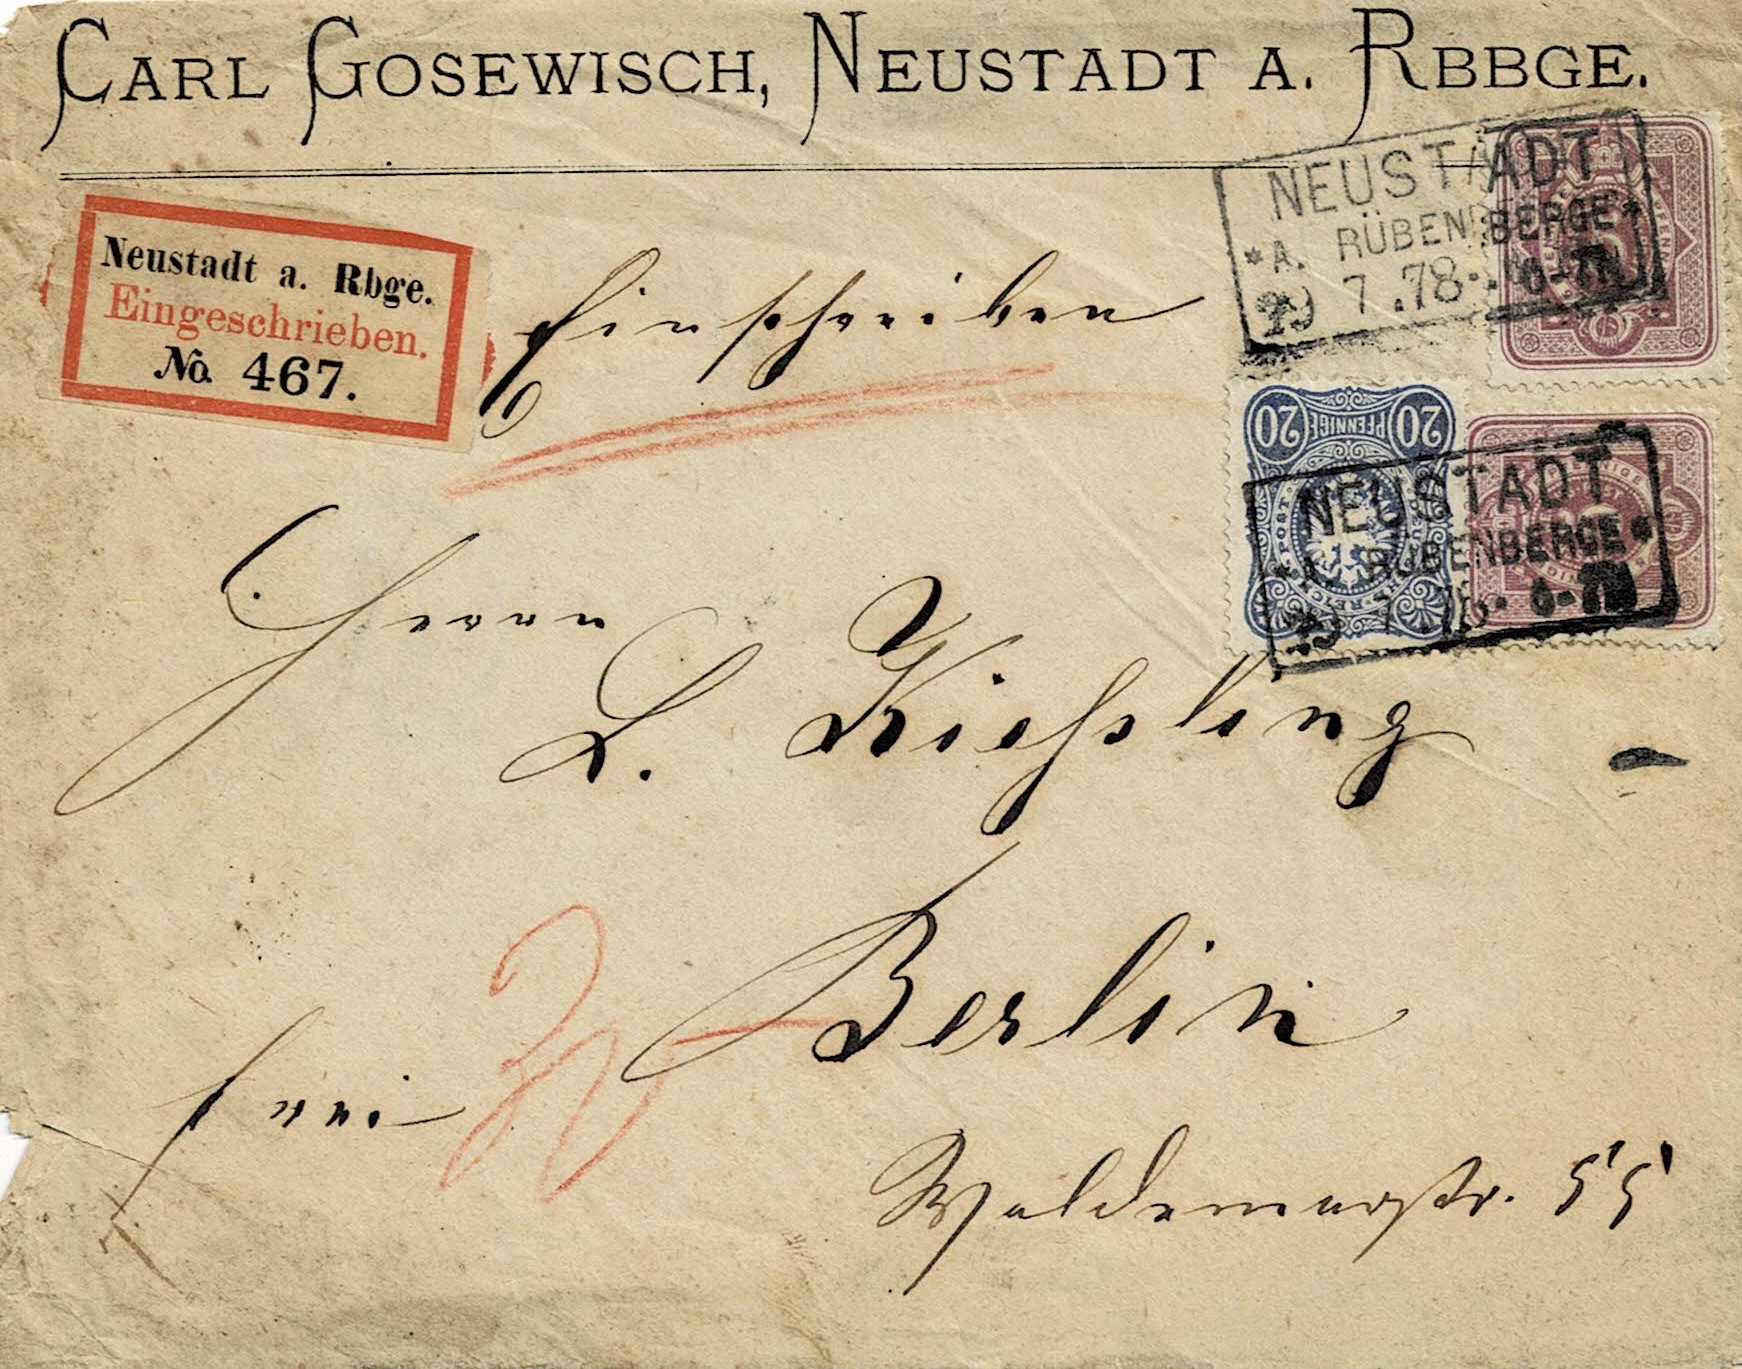 CARL GOSEWISCH, NEUSTADT A. RBBGE.
Neustadt a. Rbge.
Eingeschrieben.
No. 467.
Einschreiben
NEUSTADT
*A. RÜBENBERGE*
29 7.78. 6-7N
20 PFENNIGE 20
NEUSTADT
RÜBENBERGE*
Herrn
L. Kießling
Berlin
frei
Waldemarstr. 55